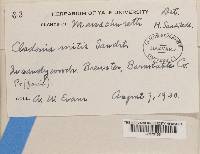 23
HERBARIUM OF YALE UNIVERSITY
Det.
PLANTS OF Massachusetts
H. Sandstede.
Cladonia mitis Sandst.
In sandy woods. Brewster, Barnstable Co.
COLL. A. W. Evans August 7, 1930.